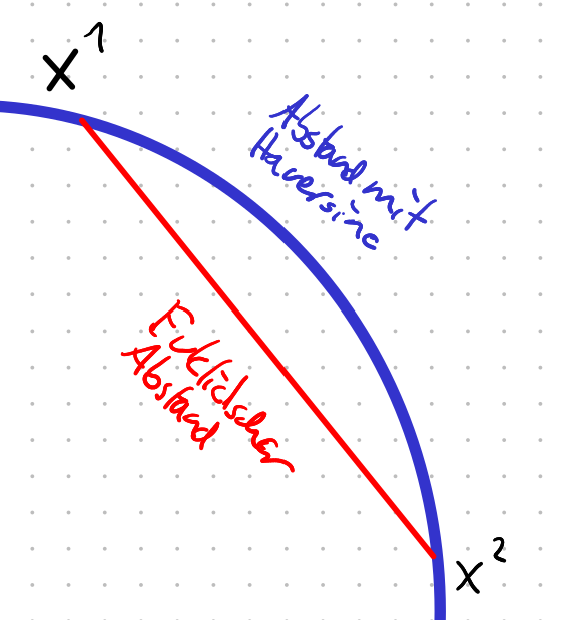 x¹
Abstand mit
Haversine
Euklidscher
Abstand
x²